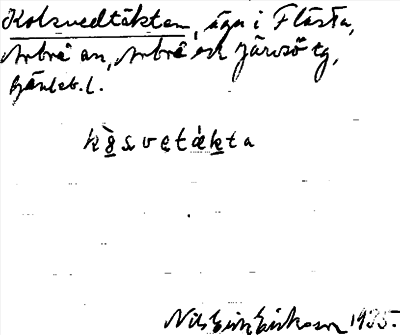 Kolsvedtäkten, äga i Flästa,
Arbrå sn, Arbrå och Järvsö tg,
Gävleb. l.
kòsvetä́kta
Nils Erik Eriksson 1935.